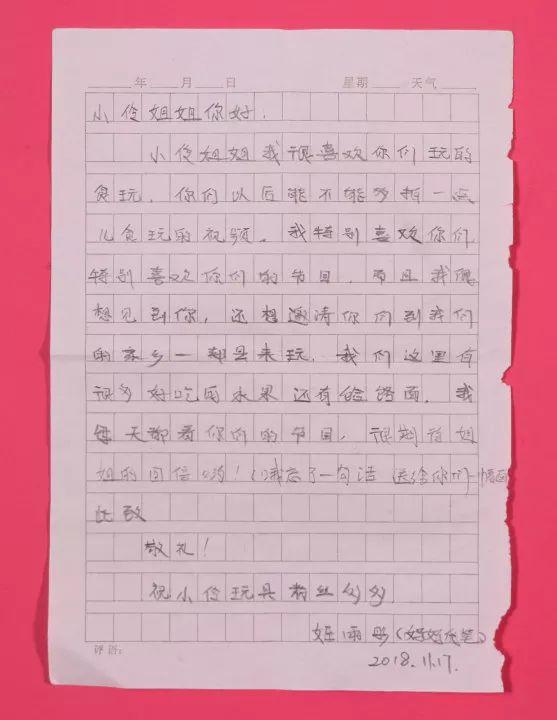 年 月 日 星期 天气
小伶姐姐你好.
小伶姐姐我很喜欢你们玩的
食玩.你们以后能不能多拍一点
儿食玩的视频.我特别喜欢你们,
特别喜欢你们的节目,而且我很
想见到你,还想邀请你们到我们
的家乡一都县来玩.我们这里有
很多好吃的水果还有饸饹面.我
每天都看你们的节目,很期待姐
姐的回信哟!(哦忘了一句话 送给你们一幅画
此致
敬礼!
祝小伶玩具粉丝多多.
雨彤(妈妈代笔)
2018.11.17.
评语: